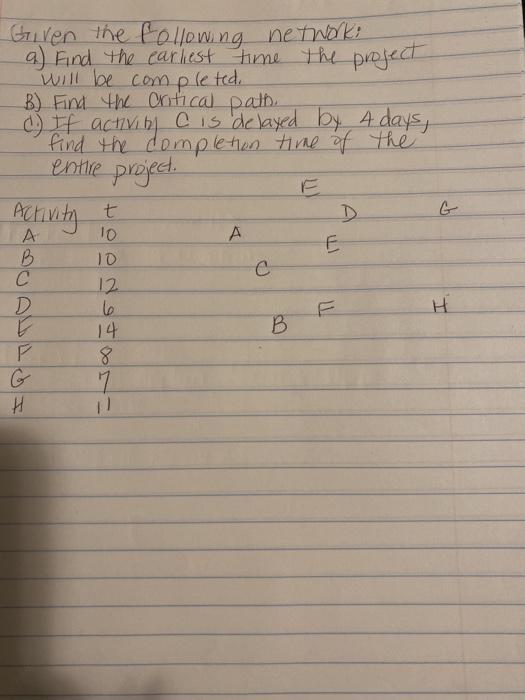 Given the following network:
a) Find the earliest time the project
will be completed.
B) Find the Critical path.
C) If activity C is delayed by 4 days,
find the completion time of the
entire project.
E
Activity t D G
A 10 A E
B 10
C 12 C
D 6 F H
E 14 B
F 8
G 7
H 11